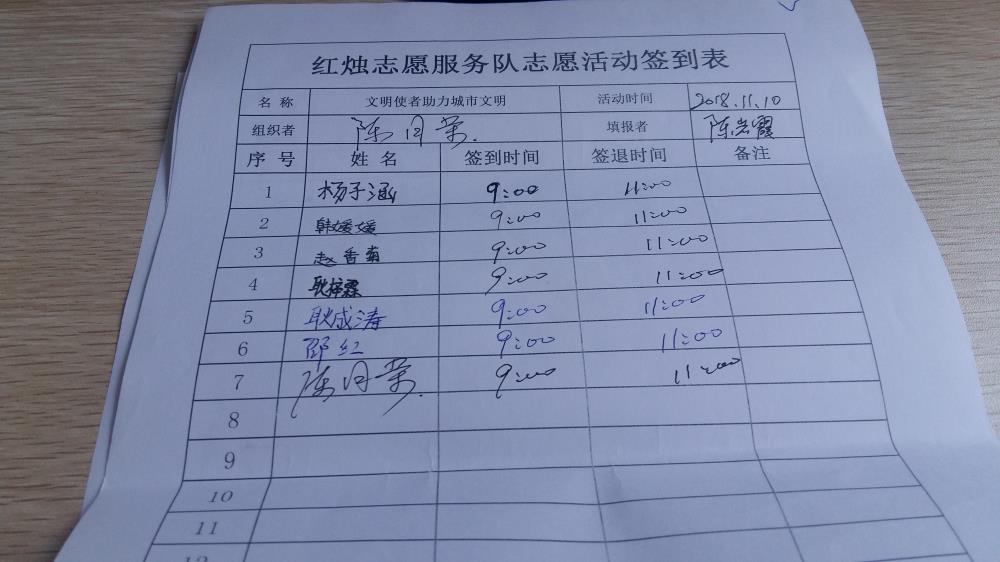 红烛志愿服务队志愿活动签到表
名 称 文明使者助力城市文明 活动时间 2018.11.10
组织者 陈月荣. 填报者 陈岩霞
序 号 姓 名 签到时间 签退时间 备注
1 杨子涵 9:00 11:00
2 韩媛媛 9:00 11:00
3 赵香菊 9:00 11:00
4 耿梓霖 9:00 11:00
5 耿成涛 9:00 11:00
6 邵红 9:00 11:00
7 陈月荣. 9:00 11:00
8
9
10
11